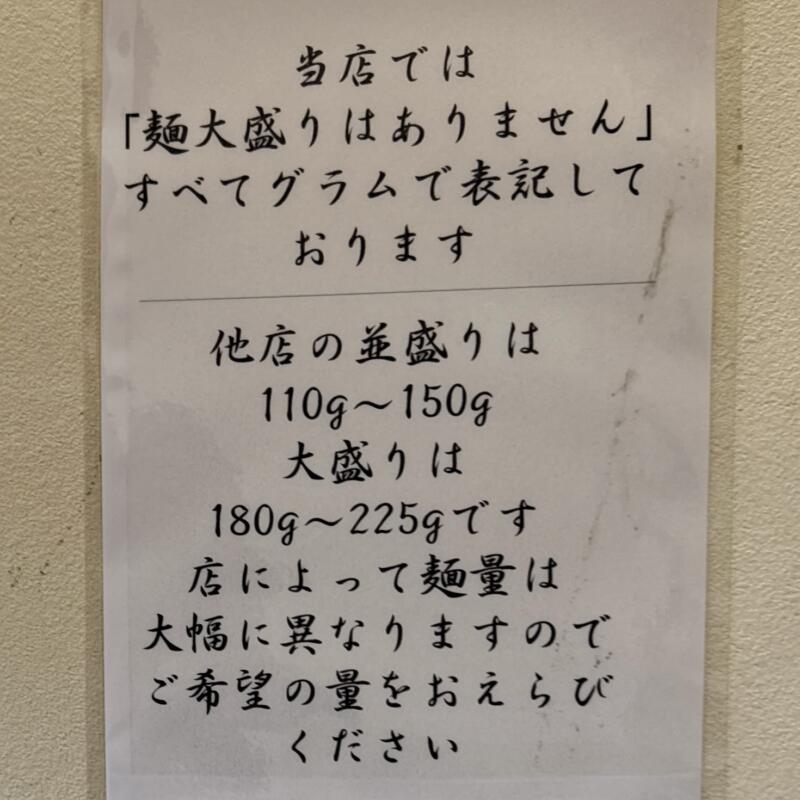 当店では
「麺大盛りはありません」
すべてグラムで表記して
おります
他店の並盛りは
110g～150g
大盛りは
180g～225gです
店によって麺量は
大幅に異なりますので
ご希望の量をおえらび
ください